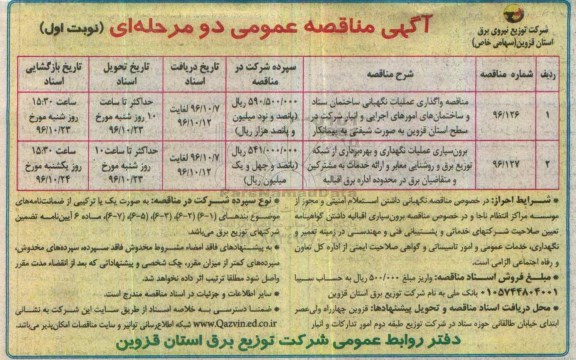 شرکت توزیع نیروی برق
استان قزوین(سهامی خاص)
آگهی مناقصه عمومی دو مرحله‌ای (نوبت اول)
ردیف
شماره مناقصه
شرح مناقصه
سپرده شرکت در مناقصه
تاریخ دریافت اسناد
تاریخ تحویل اسناد
تاریخ بازگشایی اسناد
۱
۹۶/۱۲۶
مناقصه واگذاری عملیات نگهبانی ساختمان ستاد
و ساختمان‌های امورهای اجرایی و انبار شرکت در
سطح استان قزوین به صورت شیفتی به پیمانکار
۵۹۰/۵۰۰/۰۰۰ ریال
(پانصد و نود میلیون
و پانصد هزار ریال)
۹۶/۱۰/۷ لغایت
۹۶/۱۰/۱۲
حداکثر تا ساعت
۱۰ روز شنبه مورخ
۹۶/۱۰/۲۳
ساعت ۱۵:۳۰
روز شنبه مورخ
۹۶/۱۰/۲۳
۲
۹۶/۱۲۷
برون‌سپاری عملیات نگهداری و بهره‌برداری از شبکه
توزیع برق و روشنایی معابر و ارائه خدمات به مشترکین
و متقاضیان برق در محدوده اداره برق اقبالیه
۵۴۱/۰۰۰/۰۰۰ ریال
(پانصد و چهل و یک
میلیون ریال)
۹۶/۱۰/۷ لغایت
۹۶/۱۰/۱۲
حداکثر تا ساعت ۱۰
روز شنبه مورخ
۹۶/۱۰/۲۳
ساعت ۱۵:۳۰
روز یکشنبه مورخ
۹۶/۱۰/۲۴
• شرایط احراز: در خصوص مناقصه نگهبانی داشتن استعلام امنیتی و مجوز از
موسسه مراکز انتظام ناجا و در خصوص مناقصه برون‌سپاری اقبالیه داشتن گواهینامه
تعیین صلاحیت شرکتهای خدماتی و پشتیبانی فنی و مهندسی در زمینه تعمیر و
نگهداری، خدمات عمومی و امور تاسیساتی و گواهی صلاحیت ایمنی از اداره کل تعاون
و رفاه اجتماعی الزامی است.
• مبلغ فروش اسناد مناقصه: واریز مبلغ ۵۰۰/۰۰۰ ریال به حساب سیبا
۰۱۰۵۷۴۴۸۰۴۰۰۱ بانک ملی به نام شرکت توزیع برق استان قزوین
• محل دریافت اسناد مناقصه و تحویل پیشنهادها: قزوین چهارراه ولی‌عصر
ابتدای خیابان طالقانی حوزه ستاد در شرکت توزیع طبقه دوم امور تدارکات و انبار
• نوع سپرده شرکت در مناقصه: به صورت یک یا ترکیبی از ضمانت‌نامه‌های
موضوع بندهای (۱-۶) (۲-۶)، (۳-۶)، (۵-۶)، (۷-۶)، ماده ۶ آیین‌نامه تضمین
شرکتهای توزیع برق می‌باشد.
• به پیشنهادهای فاقد امضاء مشروط مخدوش فاقد سپرده، سپرده‌های مخدوش،
سپرده‌های کمتر از میزان مقرر، چک شخصی و پیشنهاداتی که بعد از انقضاء مدت مقرر
واصل شود مطلقا ترتیب اثر داده نخواهد شد.
• سایر اطلاعات و جزئیات در اسناد مناقصه مندرج است.
• ضمنا دسترسی به خلاصه اسناد از طریق سایت این شرکت به نشانی
www.Qazvin.ed.co.ir شبکه اطلاع‌رسانی توانیر و سایت مناقصات امکان‌پذیر می‌باشد.
دفتر روابط عمومی شرکت توزیع برق استان قزوین